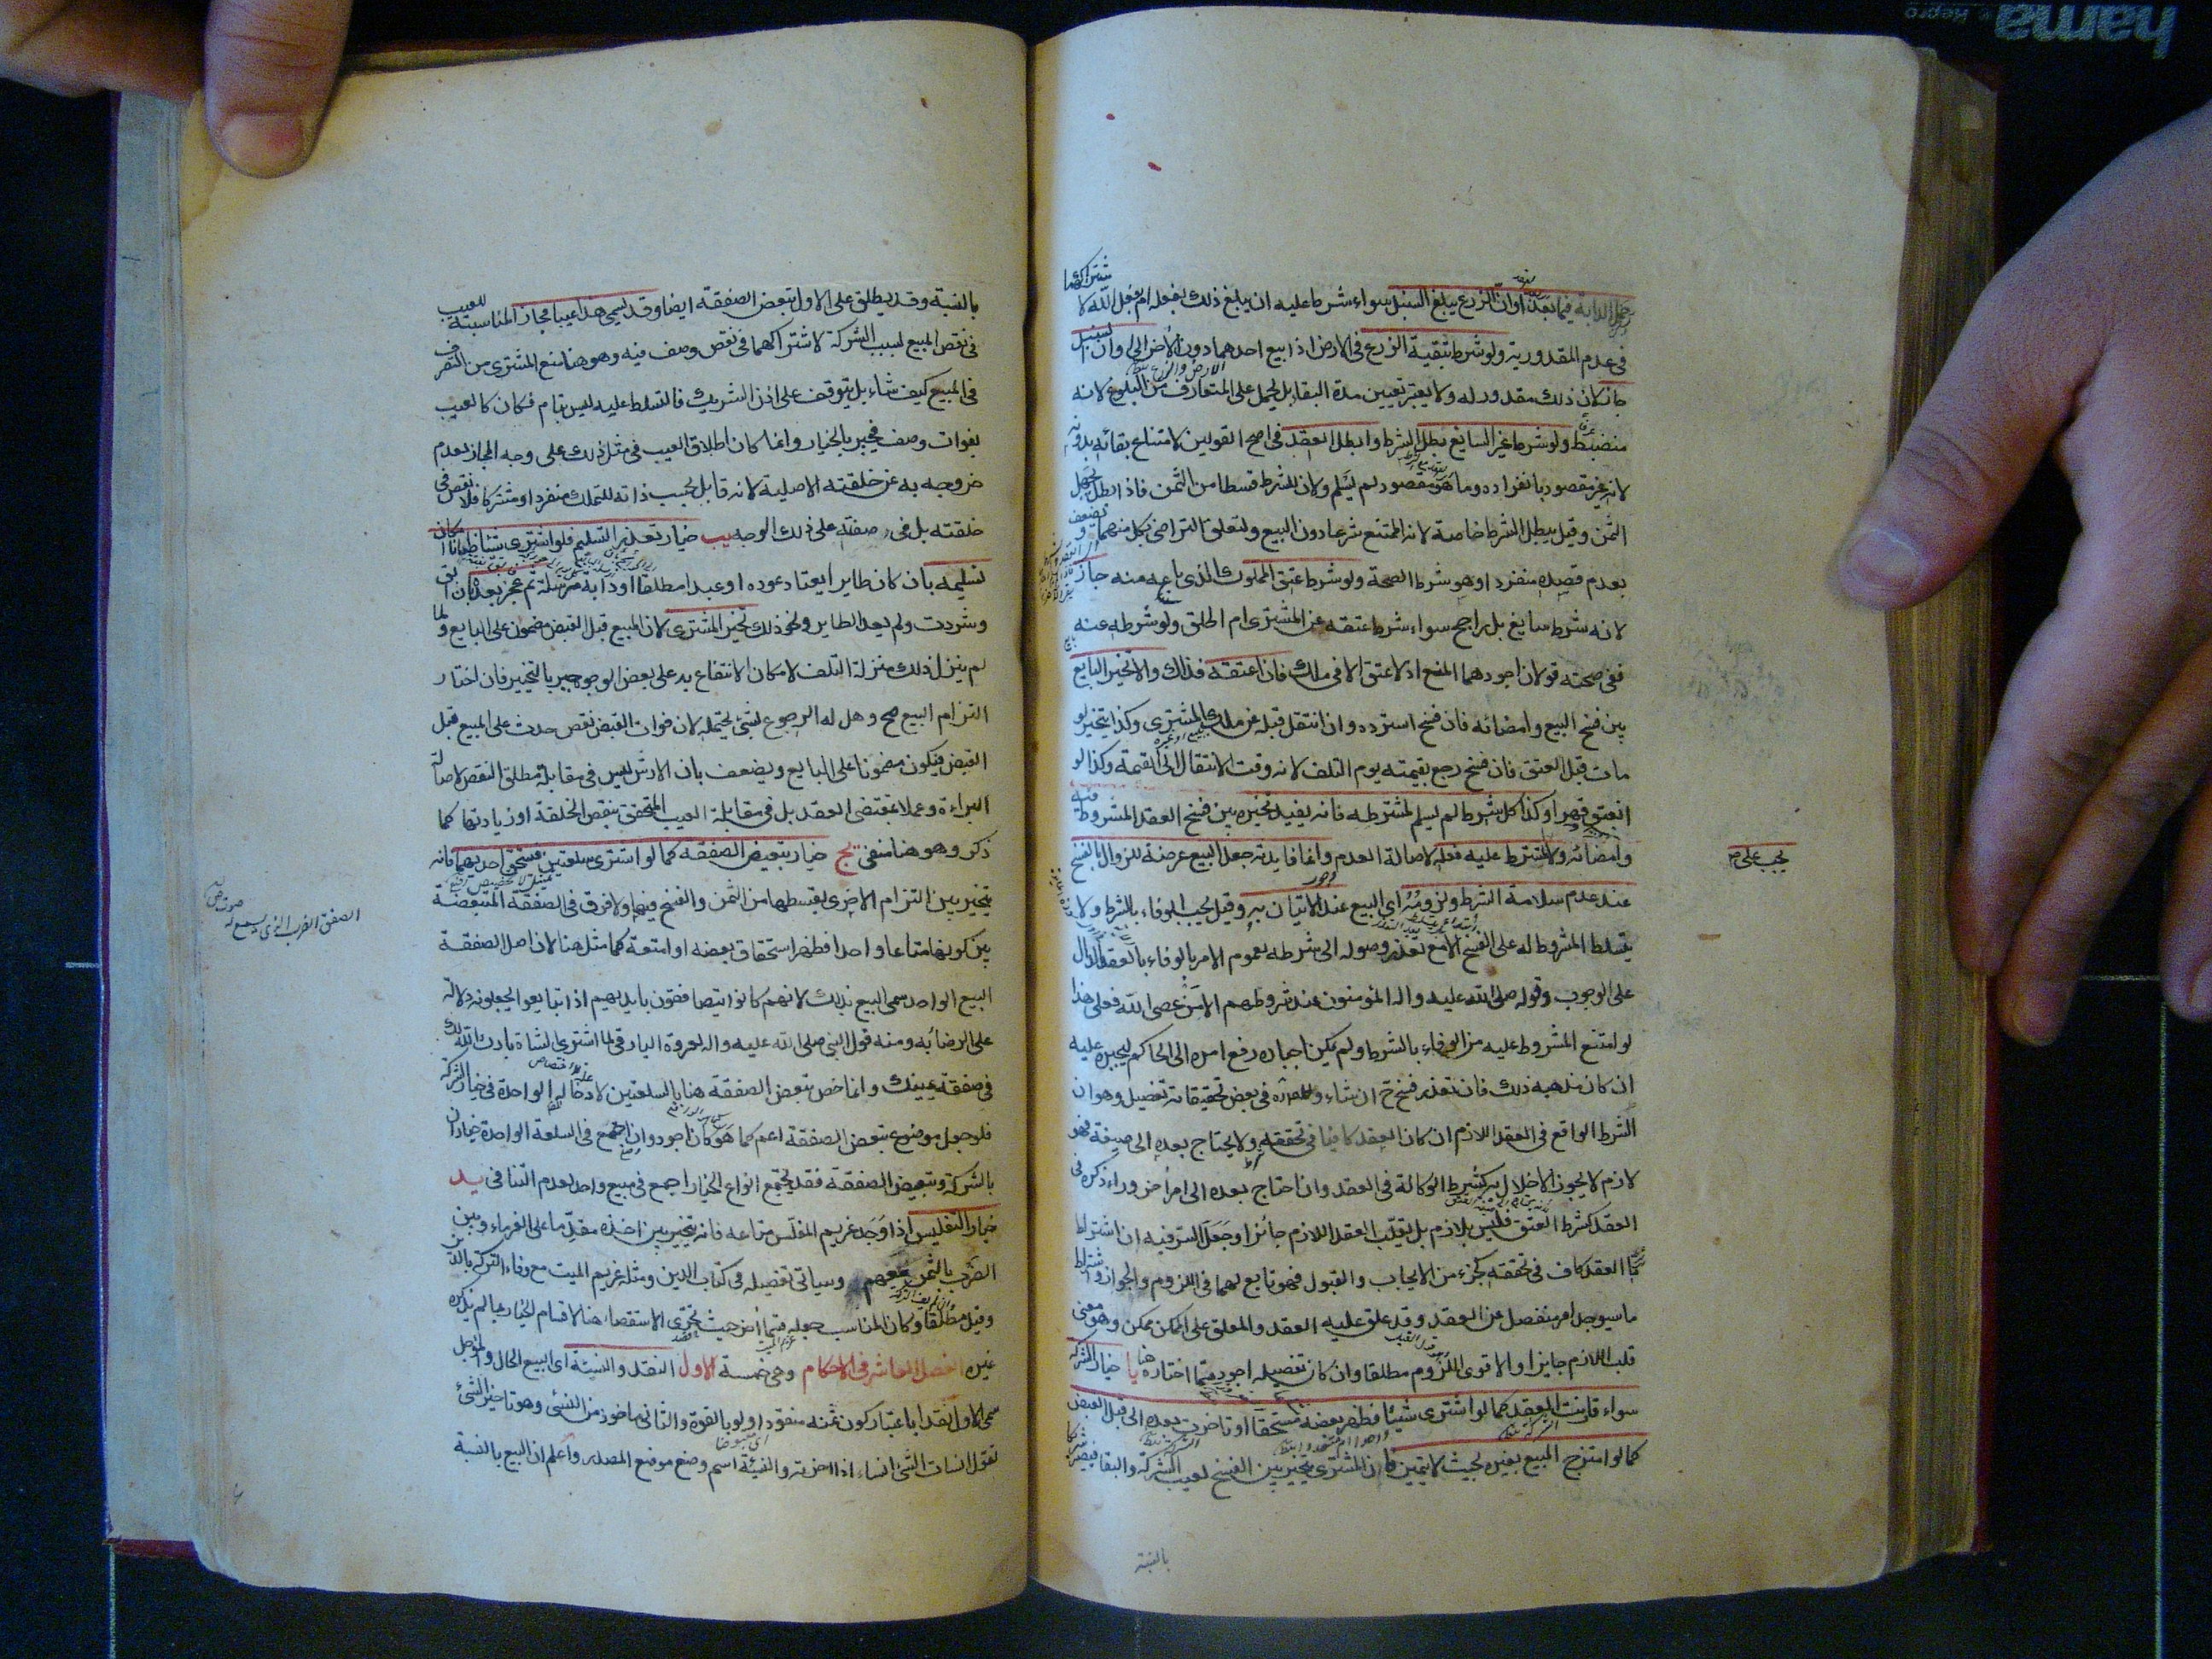 تحمل الدابة فيما بعد او ان الزرع يبلغ السنبل سواء شرط عليه ان يبلغ ذلك بفعله ام بفعل الله لاشتراكهما
فى عدم المقدورية ولو شرط تبقية الزرع فى الارض اذا بيع احدهما دون الاخر الى اوان السنبل
جاز لان ذلك مقدور له ولا يعتبر تعيين مدة البقا بل يحمل على المتعارف من البلوغ لانه
منضبط ولو شرط غير السايغ بطل الشرط وابطل العقد فى اصح القولين لامتناع بقائه بدونه
لانه غير مقصود بانفراده وما هو مقصود لم يسلم ولان للشرط قسطا من الثمن فاذا بطل يجهل
الثمن وقيل يبطل الشرط خاصة لانه الممتنع شرعا دون البيع ولتعلق التراضى بكل منهما ويضعف
بعدم قصده منفردا وهو شرط الصحة ولو شرط عتق المملوك الذى باعه منه جاز
لانه شرط سايغ بل راجح سواء شرط عتقه عن المشترى ام اطلق ولو شرطه عنه
ففى صحته قولان اجودهما المنع اذ لا عتق الا فى ملك فان اعتقه فذاك والا تخير البايع
بين فسخ البيع وامضائه فان فسخ استرده وان انتقل قبله عن ملك المشترى وكذا يتخير لو
مات قبل العتق فان فسخ رجع بقيمته يوم التلف لانه وقت الانتقال الى القيمة وكذا لو
انعتق قهرا وكذا كل شرط لم يسلم لمشترطه فانه يفيد تخيره بين فسخ العقد المشروط فيه
وامضائه ولا يشترط عليه فعله لاصالة العدم وانما فايدته جعل البيع عرضة للزوال بالفسخ
عند عدم سلامة الشرط ولزومه اى البيع عند الاتيان به وقيل يجب الوفاء بالشرط ولا
يتسلط المشروط له على الفسخ الا مع تعذر وصوله الى شرطه لعموم الامر بالوفاء بالعقد الدال
على الوجوب وقوله صلى الله عليه واله المؤمنون عند شروطهم الا من عصى الله فعلى هذا
لو امتنع المشروط عليه من الوفاء بالشرط ولم يمكن اجباره رفع امره الى الحاكم ليجبره عليه
ان كان مذهبه ذلك فان تعذر فسخ ح ان شاء وللمص ره فى بعض تحقيقاته تفصيل وهو ان
الشرط الواقع فى العقد اللازم ان كان العقد كافيا فى تحققه ولا يحتاج بعده الى صيغة فهو
لازم لا يجوز الاخلال به كشرط الوكالة فى العقد وان احتاج بعده الى امر اخر وراء ذكره فى
العقد كشرط العتق فليس بلازم بل يقلب العقد اللازم جائزا وجعل السر فيه ان اشتراط
ما العقد كاف فى تحققه كجزء من الايجاب والقبول فهو تابع لهما فى اللزوم والجواز واشتراط
ما سيوجد امر منفصل عن العقد وقد علق عليه العقد والمعلق على الممكن ممكن وهو معنى
قلب اللازم جايزا والاقوى اللزوم مطلقا وان كان تفصيله اجود مما اختاره هنا يا خيار الشركة
سواء قارنت العقد كما لو اشترى شيئا فظهر بعضه مستحقا او تاخرت بعده الى قبل القبض
كما لو امتزج المبيع بغيره بحيث لا يتميز فان المشترى يتخير بين الفسخ لعيب الشركة والبقا فيصير شريكا
بالنسبة
يجب على ص
بالنسبة وقد يطلق على الاول تبعض الصفقة ايضا وقد يسمى هذا عيبا مجازا لمناسبته للعيب
فى نقص المبيع بسبب الشركة لاشتراكهما فى نقص وصف فيه وهو هنا منع المشترى من التصرف
فى المبيع كيف شاء بل يتوقف على اذن الشريك فالتسلط عليه ليس بتام فكان كالعيب
بفوات وصف فيجبر بالخيار وانما كان اطلاق العيب فى مثل ذلك على وجه المجاز لعدم
خروجه به عن خلقته الاصلية لانه قابل بحسب ذاته للتملك منفردا ومشتركا فلا نقص فى
خلقته بل فى صفته على ذلك الوجه يب خيار تعذر التسليم فلو اشترى شيئا ظانا امكان
تسليمه بان كان طايرا يعتاد عوده او عبدا مطلقا او دابة مرسلة ثم عجز بعد بان ابق
وشردت ولم يعد الطاير ونحو ذلك تخير المشترى لان المبيع قبل القبض مضمون على البايع ولما
لم ينزل ذلك منزلة التلف لامكان الانتفاع به على بعض الوجوه جبر بالتخيير فان اختار
التزام البيع صح وهل له الرجوع بشئ يحتمله لان فوات القبض نقص حدث على المبيع قبل
القبض فيكون مضمونا على البايع ويضعف بان الارش ليس فى مقابلة مطلق النقص لاصالة
البراءة وعملا بمقتضى العقد بل فى مقابلة العيب المتحقق بنقص الخلقة او زيادتها كما
ذكر وهو هنا منفى يج خيار تبعيض الصفقة كما لو اشترى سلعتين فتستحق احديهما فانه
يتخير بين التزام الاخرى بقسطها من الثمن والفسخ فيهما ولا فرق فى الصفقة المتبعضة
بين كونها متاعا واحدا فظهر استحقاق بعضه او امتعة كما مثل هنا لان اصل الصفقة
البيع الواحد سمى البيع بذلك لانهم كانوا يتصافقون بايديهم اذا تبايعوا يجعلونه دلالة
على الرضا به ومنه قول النبى صلى الله عليه واله لعروة البارقى لما اشترى الشاة بارك الله لك
فى صفقة يمينك وانما خص تبعض الصفقة هنا بالسلعتين لادخاله الواحدة فى خيار الشركة
فلو جعل موضوع تبعض الصفقة اعم كما هو كان اجود وان اجتمع فى السلعة الواحدة خياران
بالشركة وتبعيض الصفقة فقد يجتمع انواع الخيار اجمع فى مبيع واحد لعدم التنافى يد
خيار التفليس اذا وجد غريم المفلس متاعه فانه يتخير بين اخذه مقدما على الغرماء وبين
الضرب بالثمن معهم وسياتى تفصيله فى كتاب الدين ومثله غريم الميت مع وفاء التركة بالدين
وقيل مطلقا وكان المناسب جعله قسما اخر حيث تحرى الاستقصاء هنا لاقسام الخيار بما لم يذكره
غيره الفصل العاشر فى الاحكام وهى خمسة الاول النقد والنسيئة اى البيع الحال والمؤجل
سمى الاول نقدا باعتبار كون ثمنه منقودا ولو بالقوة والثانى ماخوذ من النسئ وهو تاخير الشئ
تقول انسات الشئ انساء اذا اخرته والنسيئة اسم وضع موضع المصدر واعلم ان البيع بالنسبة
الصفق الضرب الذى يسمع له صوت ص
hama
Repro